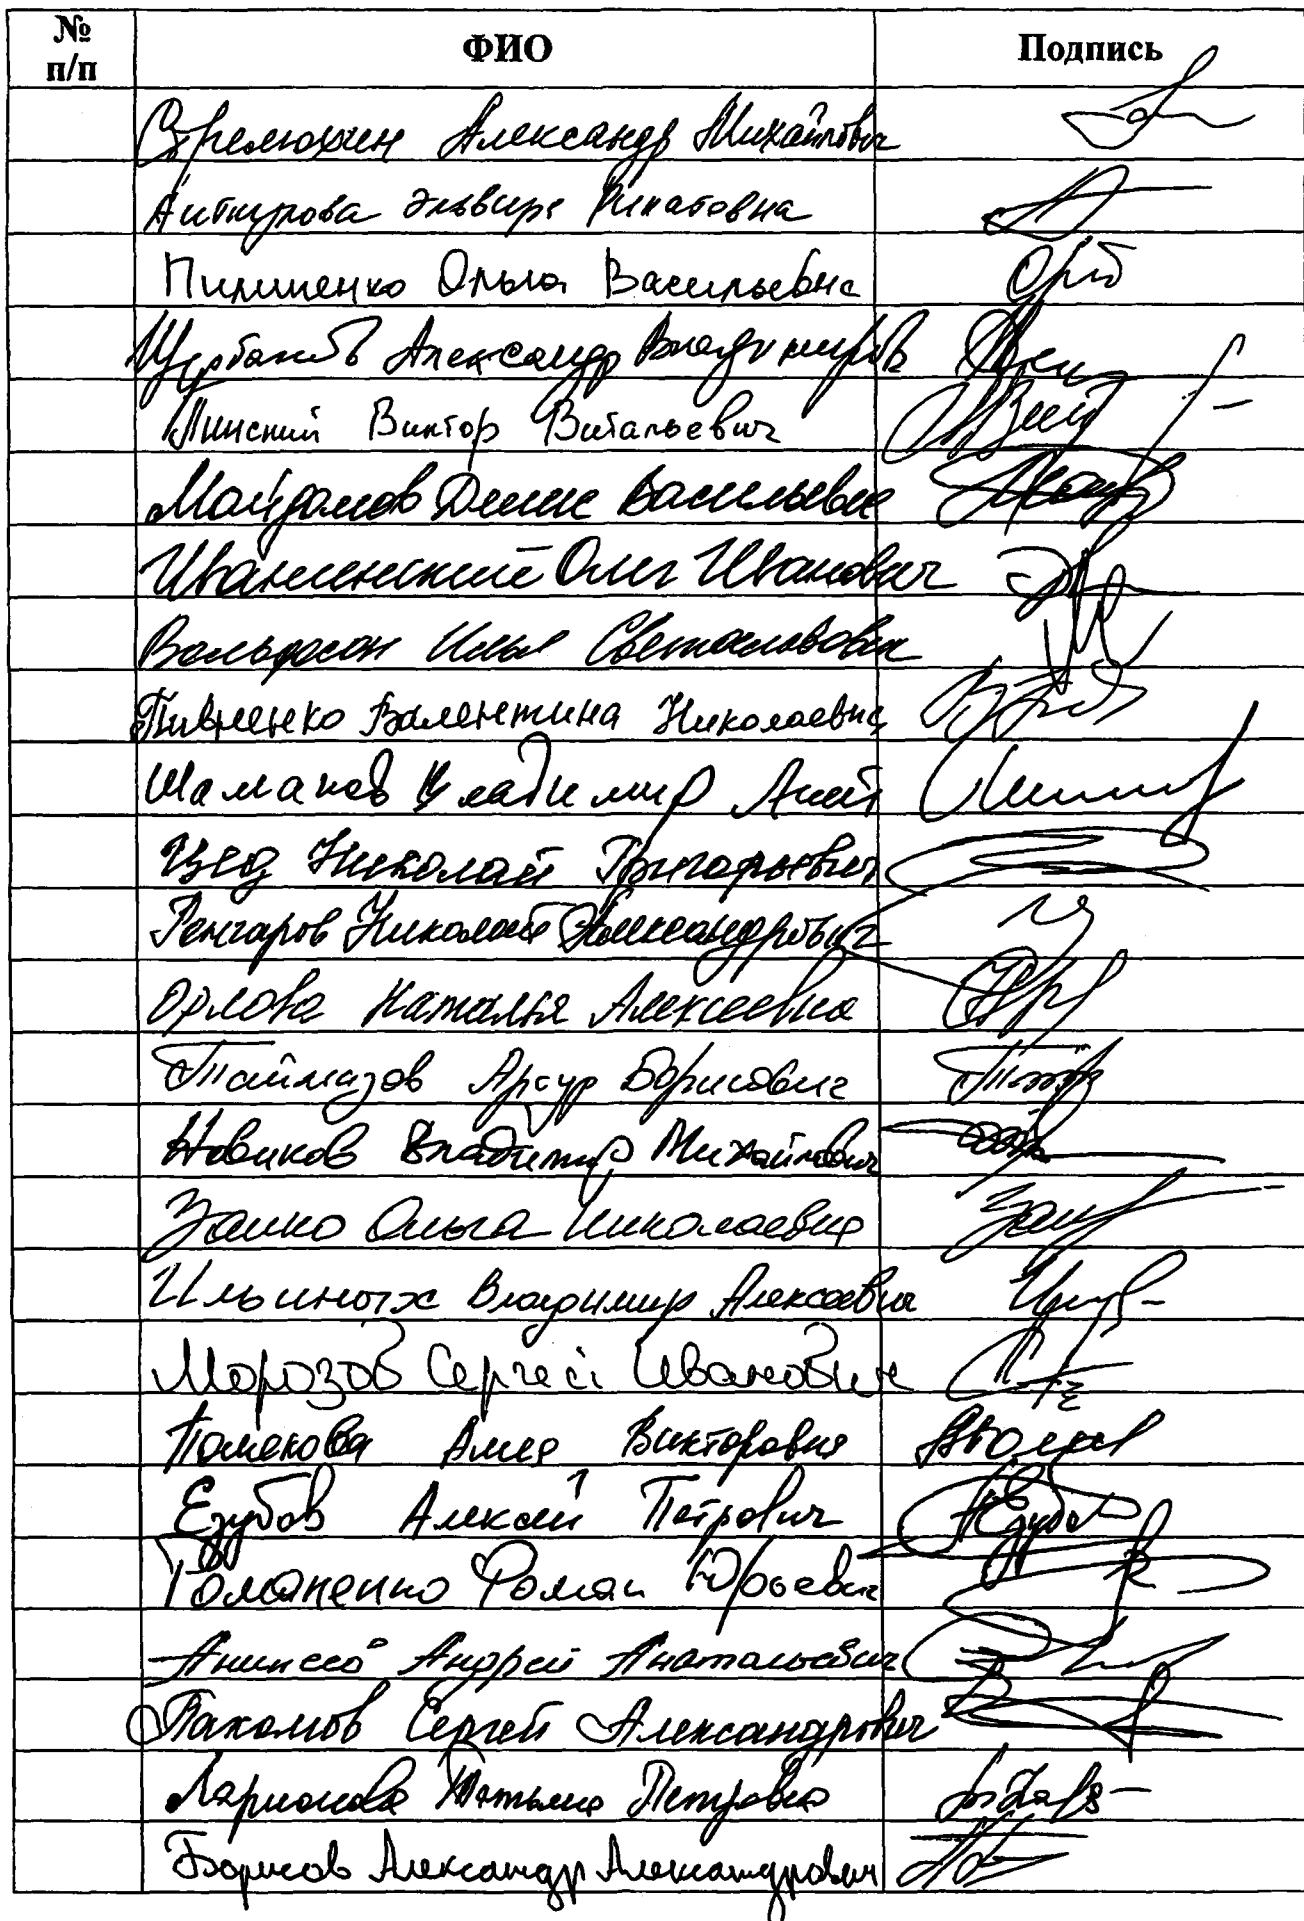 № п/п ФИО Подпись
Стрелюхин Александр Михайлович
Аиткулова Эльвира Ринатовна
Пилипенко Ольга Васильевна
Щербаков Александр Владимиров
Пинский Виктор Витальевич
Майданов Денис Васильевич
Иванинский Олег Иванович
Вольфсон Илья Светославович
Пивненко Валентина Николаевна
Шаманов Владимир Анат
Цед Николай Григорьевич
Гончаров Николай Александрович
Орлова Наталья Алексеевна
Таймазов Артур Борисович
Новиков Владимир Михайлович
Занко Ольга Николаевна
Ильиных Владимир Алексеевич
Морозов Сергей Иванович
Полякова Алла Викторовна
Езубов Алексей Петрович
Романенко Роман Юрьевич
Аникеев Андрей Анатольевич
Пахомов Сергей Александрович
Ларионова Татьяна Петровна
Борисов Александр Александрович